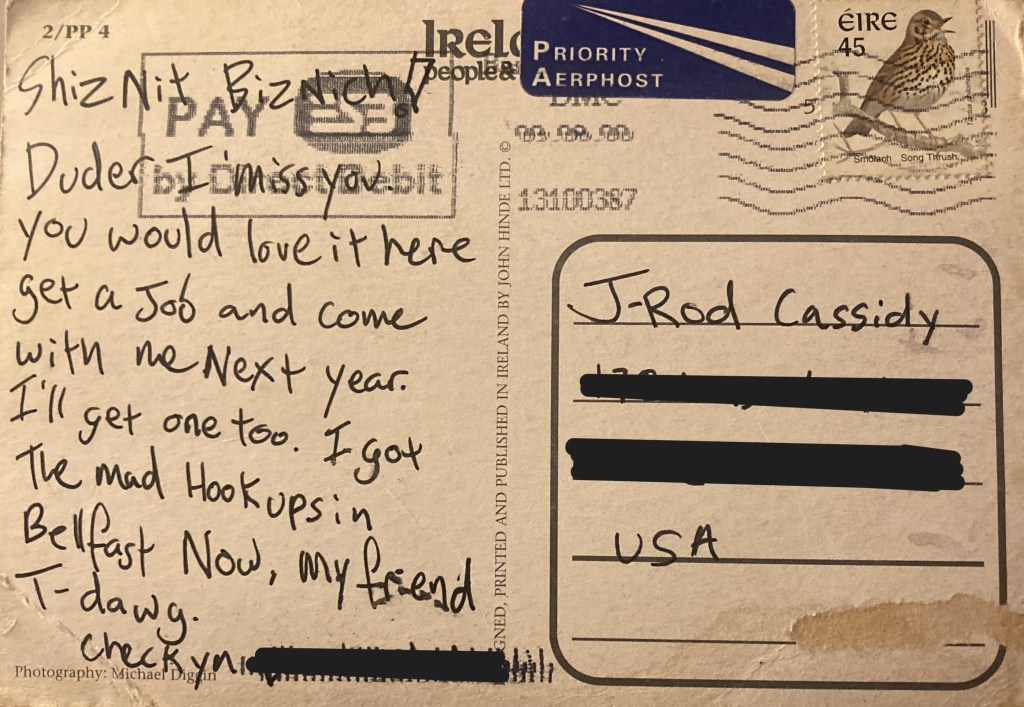 2/PP 4
Irel
people &
PRIORITY
AERPHOST
ÉIRE
45
Smólach Song Thrush
5
DMC
13100387
PAY
by Direct Debit
ShizNit Biznich!
Duder I miss you.
you would love it here
get a Job and come
with me Next year.
I'll get one too. I got
The mad Hook ups in
Bellfast Now, my friend
T-dawg.
check yn
Photography: Michael Diggin
GNED, PRINTED AND PUBLISHED IN IRELAND BY JOHN HINDE LTD. ©
J-Rod Cassidy
USA